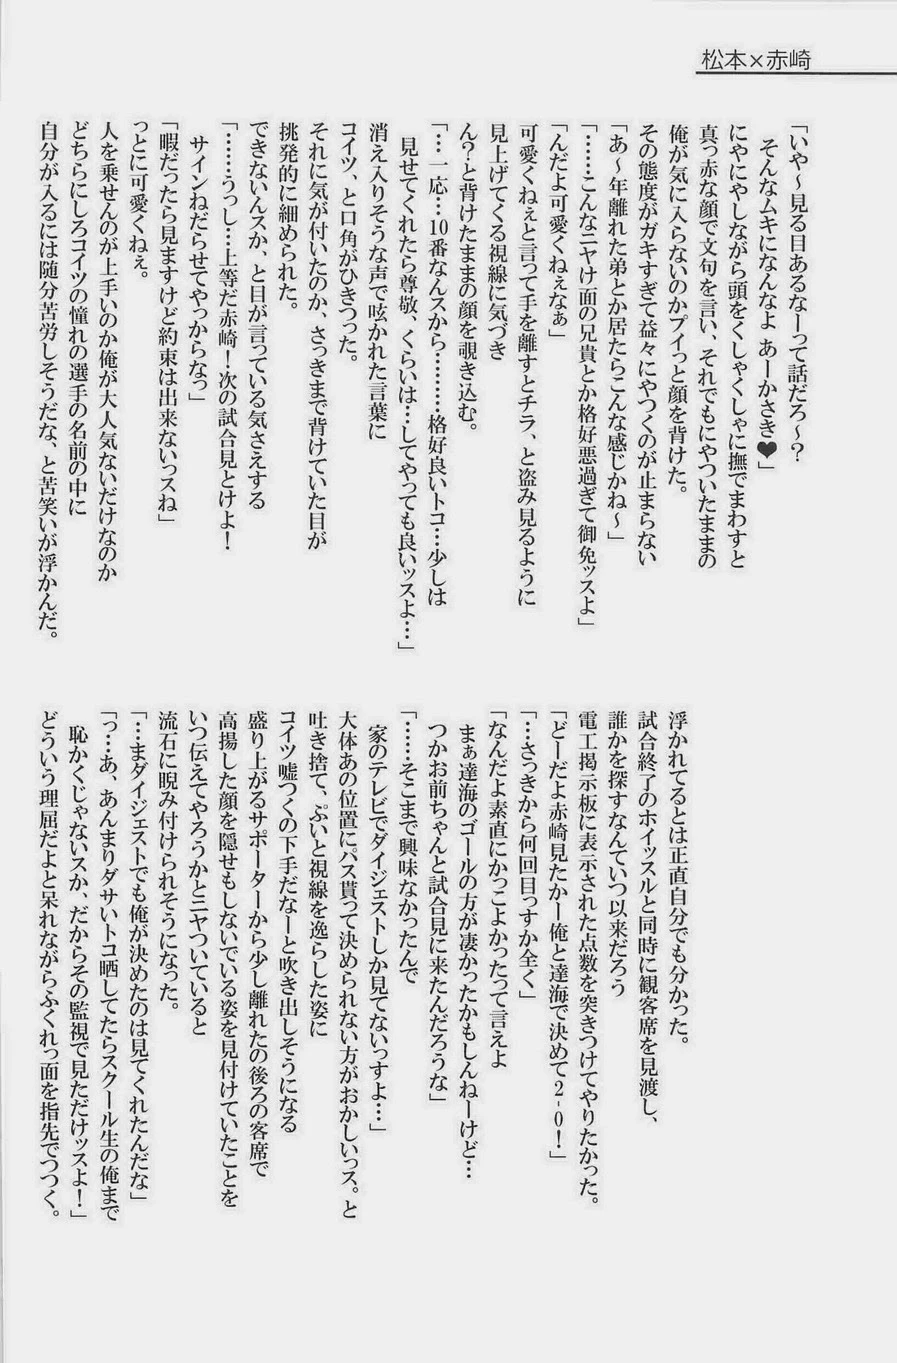 松本×赤崎
「いや～見る目あるなーって話だろ～?
そんなムキになんなよ あーかさき♥」
にやにやしながら頭をくしゃくしゃに撫でまわすと
真っ赤な顔で文句を言い、それでもにやついたままの
俺が気に入らないのかプイっと顔を背けた。
その態度がガキすぎて益々にやつくのが止まらない
「あ～年離れた弟とか居たらこんな感じかね～」
「……こんなニヤけ面の兄貴とか格好悪過ぎて御免ッスよ」
「んだよ可愛くねぇなぁ」
可愛くねぇと言って手を離すとチラ、と盗み見るように
見上げてくる視線に気づき
ん?と背けたままの顔を覗き込む。
「…一応…10番なんスから………格好良いトコ…少しは
見せてくれたら尊敬、くらいは…してやっても良いッスよ…」
消え入りそうな声で呟かれた言葉に
コイツ、と口角がひきつった。
それに気が付いたのか、さっきまで背けていた目が
挑発的に細められた。
できないんスか、と目が言っている気さえする
「……うっし…上等だ赤崎!次の試合見とけよ!
サインねだらせてやっからなっ」
「暇だったら見ますけど約束は出来ないっスね」
っとに可愛くねぇ。
人を乗せんのが上手いのか俺が大人気ないだけなのか
どちらにしろコイツの憧れの選手の名前の中に
自分が入るには随分苦労しそうだな、と苦笑いが浮かんだ。
浮かれてるとは正直自分でも分かった。
試合終了のホイッスルと同時に観客席を見渡し、
誰かを探すなんていつ以来だろう
電工掲示板に表示された点数を突きつけてやりたかった。
「どーだよ赤崎見たかー俺と達海で決めて2-0!」
「…さっきから何回目っすか全く」
「なんだよ素直にかっこよかったって言えよ
まぁ達海のゴールの方が凄かったかもしんねーけど…
つかお前ちゃんと試合見に来たんだろうな」
「……そこまで興味なかったんで
家のテレビでダイジェストしか見てないっすよ…」
大体あの位置にパス貰って決められない方がおかしいっス。と
吐き捨て、ぷいと視線を逸らした姿に
コイツ嘘つくの下手だなーと吹き出しそうになる
盛り上がるサポーターから少し離れたの後ろの客席で
高揚した顔を隠せもしないでいる姿を見付けていたことを
いつ伝えてやろうかとニヤついていると
流石に睨み付けられそうになった。
「…まダイジェストでも俺が決めたのは見てくれたんだな」
「っ…あ、あんまりダサいトコ晒してたらスクール生の俺まで
恥かくじゃないスか、だからその監視で見ただけッスよ!」
どういう理屈だよと呆れながらふくれっ面を指先でつつく。